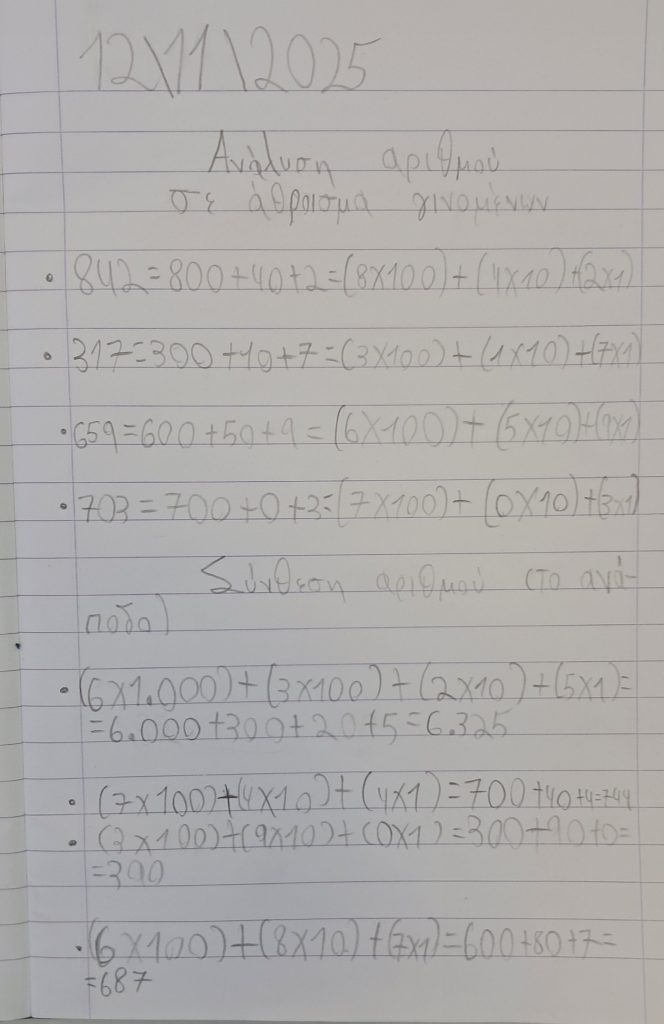 12\11\2025
Ανάλυση αριθμού
σε άθροισμα γινομένων
• 842=800+40+2=(8x100)+(4x10)+(2x1)
• 317=300+10+7=(3x100)+(1x10)+(7x1)
• 659=600+50+9=(6x100)+(5x10)+(9x1)
• 703=700+0+3=(7x100)+(0x10)+(3x1)
Σύνθεση αριθμού (το ανά-
ποδο)
• (6x1.000)+(3x100)+(2x10)+(5x1)=
=6.000+300+20+5=6.325
• (7x100)+(4x10)+(4x1)=700+40+4=744
• (3x100)+(9x10)+(0x1)=300+90+0=
=390
• (6x100)+(8x10)+(7x1)=600+80+7=
=687